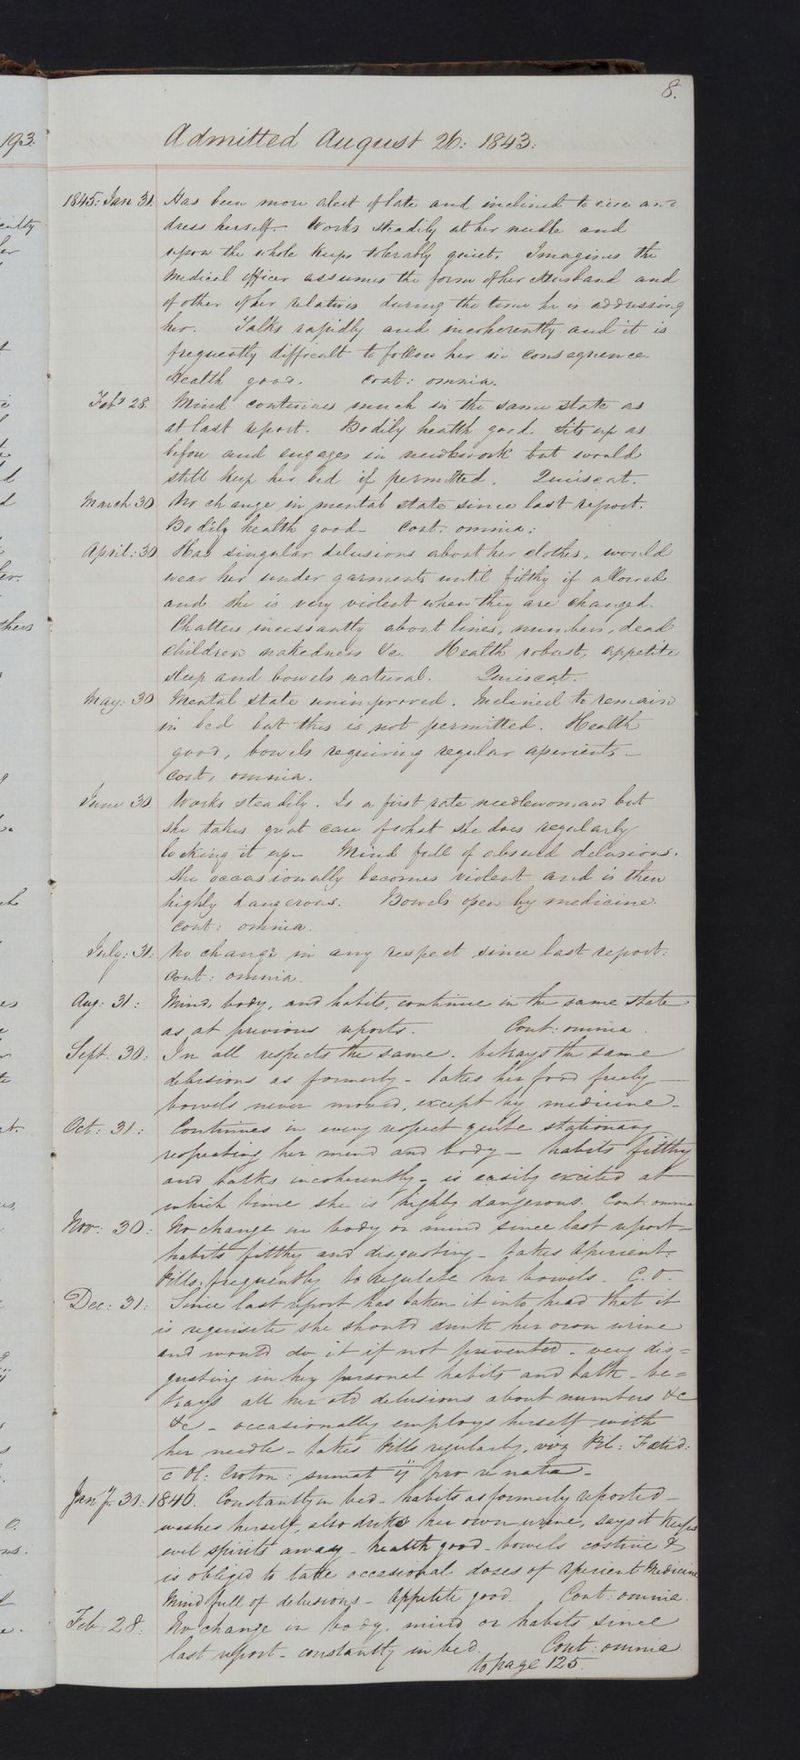 8.
193.
Admitted August 26: 1843:
1845: Jan 31. Has been more alert of late and inclined to rise and
dress herself. Works steadily at her needle and
upon the whole keeps tolerably quiet. Imagines the
Medical officer assumes the form of her Husband and
of other of her relatives during the time he is addressing
her. Talks rapidly and incoherently and it is
frequently difficult to follow her in consequence.
Health good. Cont: omnia.
Feby 28. Mind continues much in the same state as
at last report. Bodily health good. Sits up as
before and engages in needlework but would
still keep her bed if permitted. Quiescat.
March 30 No change in mental state since last report.
Bodily health good - Cont: omnia:
April: 30 Has singular delusions about her clothes, would
wear her under garments until filthy if allowed
and she is very violent when they are changed.
Chatters incessantly about lines, numbers, dead
children nakedness &c. Health robust, appetite
sleep and bowels natural. Quiescat.
May: 30 Mental state unimproved. Inclined to remain
in bed but this is not permitted. Health
good, bowels requiring regular aperients -
Cont, omnia.
June 30 Works steadily. Is a first rate needlewoman but
she takes great care of what she does regularly
locking it up - Mind full of absurd delusions.
She occasionally becomes violent and is then
highly dangerous. Bowels open by medicine.
Cont: omnia.
July: 31: No change in any respect since last report:
Cont: omnia.
Aug: 31: Mind, body, and habits, continue in the same state
as at previous reports. Cont: omnia.
Sept: 30: In all respects the same. betrays the same
delusions as formerly - takes her food freely -
bowels never moved, except by medicine -
Oct: 31: Continues in every respect quite stationary
respecting her mind and body - habits filthy
and talks incoherently - is easily excited at
which time she is highly dangerous. Cont: omnia
Nov: 30: No change in body or mind since last report -
habits filthy and disgusting - takes Aperient
Pills frequently to regulate her bowels. C. O.
Dec: 31: Since last report has taken it into head that it
is requisite she should drink her own urine
and would do it if not prevented - very dis=
gusting in her personal habits and talk - be=
trays all her old delusions about numbers &c
&c - occasionally employs herself with
her needle - takes Pills regularly, viz Pil:
c Ol: Croton: sumat ij pro re nata -
Jany 31: 1846. Constantly in bed - habits as formerly reported -
washes herself, also drinks her own urine, says it keeps
evil spirits away - health good - bowels costive &
is obliged to take occasional doses of Aperient Medicine
Mind full of delusions - Appetite good. Cont: omnia.
Feb: 28: No change in body, mind or habits since
last report - constantly in bed Cont: omnia
to page 125.